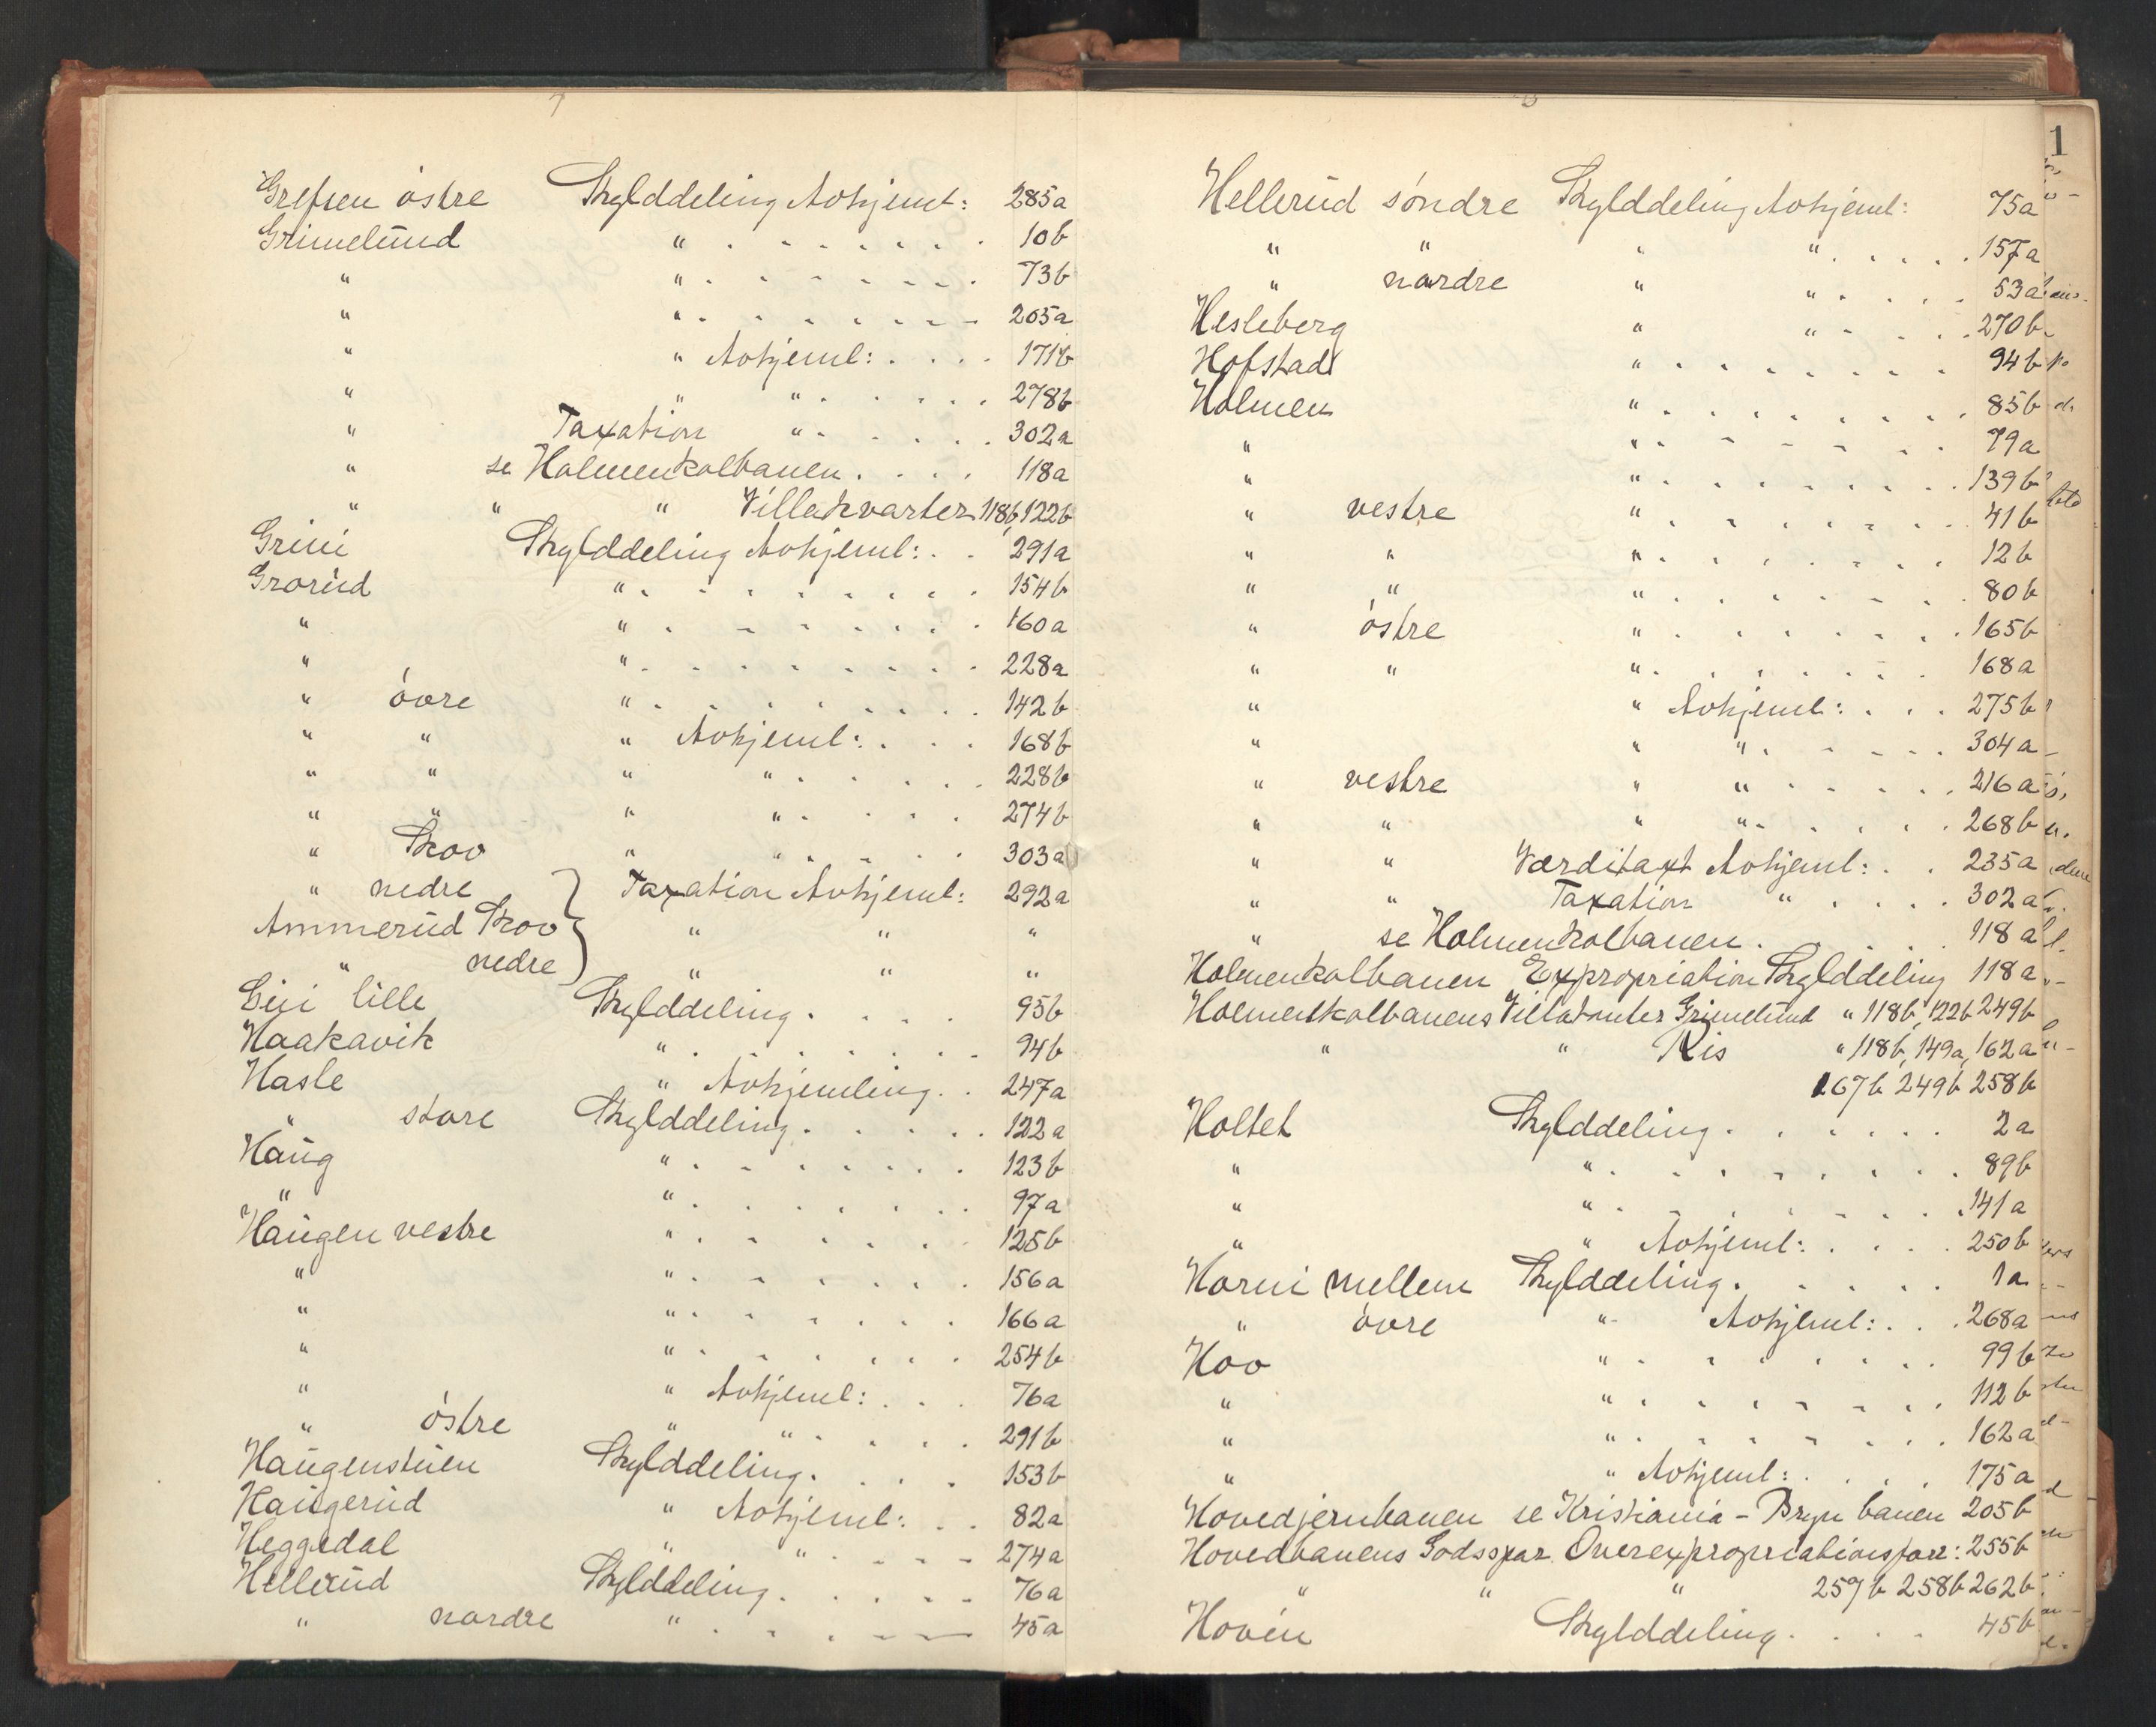 7
Grefsen østre Skylddeling Avhjeml: 285a
Grimelund " . . . . . . . 10b
" " . . . . . . . 73b
" " . . . . . . . 205a
" " Avhjeml: . . . . 171b
" " " . . . . . 278b
" Taxation " . . . . . 302a
" se Holmenkolbanen . . . . 118a
" " " Villakvarter 118b, 122b
Grini Skylddeling Avhjeml: . . 291a
Grorud " . . . . . . . . 154b
" " . . . . . . . 160a
" " . . . . . . . . 228a
" øvre " . . . . . . . . 142b
" " " Avhjeml: . . . 168b
" " " " . . . . . 228b
" " " " . . . . 274b
" Skov " " . . . . . 303a
" nedre } Taxation Avhjeml: 292a
Ammerud Skov } " " "
" nedre } " " "
Gui lille Skylddeling . . . . 95b
Haakavik " . . . . . . . 94b
Hasle " Avhjemling . . 247a
" store Skylddeling . . . . . 122a
Haug " . . . . . . . 123b
" " . . . . . . . 97a
Haugen vestre " . . . . . . 125b
" " . . . . . . . 156a
" " . . . . . . . 166a
" " . . . . . . . 254b
" " Avhjeml: . . . 76a
" østre " " . . . . 291b
Haugenstuen Skylddeling . . . . 153b
Haugerud " Avhjeml: . . 82a
Heggedal " " . . . . 274a
Hellerud Skylddeling . . . . . 76a
" nordre " . . . . . 45a
Hellerud søndre Skylddeling Avhjeml: 75a
" " " " . . . . . 157a
" nordre " " . . . . 53a
Hesleberg " " . . . . 270b
Hofstad " . . . . . . . . 94b
Holmen " . . . . . . . . 85b
" " . . . . . . . 79a
" " . . . . . . . . 139b
" vestre " . . . . . . . 41b
" " " . . . . . . . 12b
" " " . . . . . . . 80b
" østre " . . . . . . . 165b
" " " . . . . . . . 168a
" " Avhjeml: . . . 275b
" " " . . . . . 304a
" vestre " " . . . . . 216a
" " " " . . . . . 268b
" " Værditaxt Avhjeml: . . 235a
" " Taxation " . . . . 302a
" se Holmenkolbanen . . . . 118a
Holmenkolbanen Expropriation Skylddeling 118a
Holmenkolbanens Villakvarter Grimelund " 118b, 122b 249b
" " Ris " 118b, 149a, 162a
167b 249b 258b
Holtet Skylddeling . . . . . . 2a
" " . . . . . . . . 89b
" " . . . . . . . . 141a
" " Avhjeml: . . . . 250b
Horni mellem Skylddeling . . . . . 1a
" øvre " Avhjeml: . . . 268a
Hov " . . . . . . . 99b
" " . . . . . . . 112b
" " . . . . . . . 162a
" " Avhjeml: . . . . 175a
Hovedjernbanen se Kristiania - Bryn banen 205b
Hovedbanens Godsspor Overexpropriationsforr: 255b
" " " 257b 258b 262b
Hovin Skylddeling . . . . 45b
1